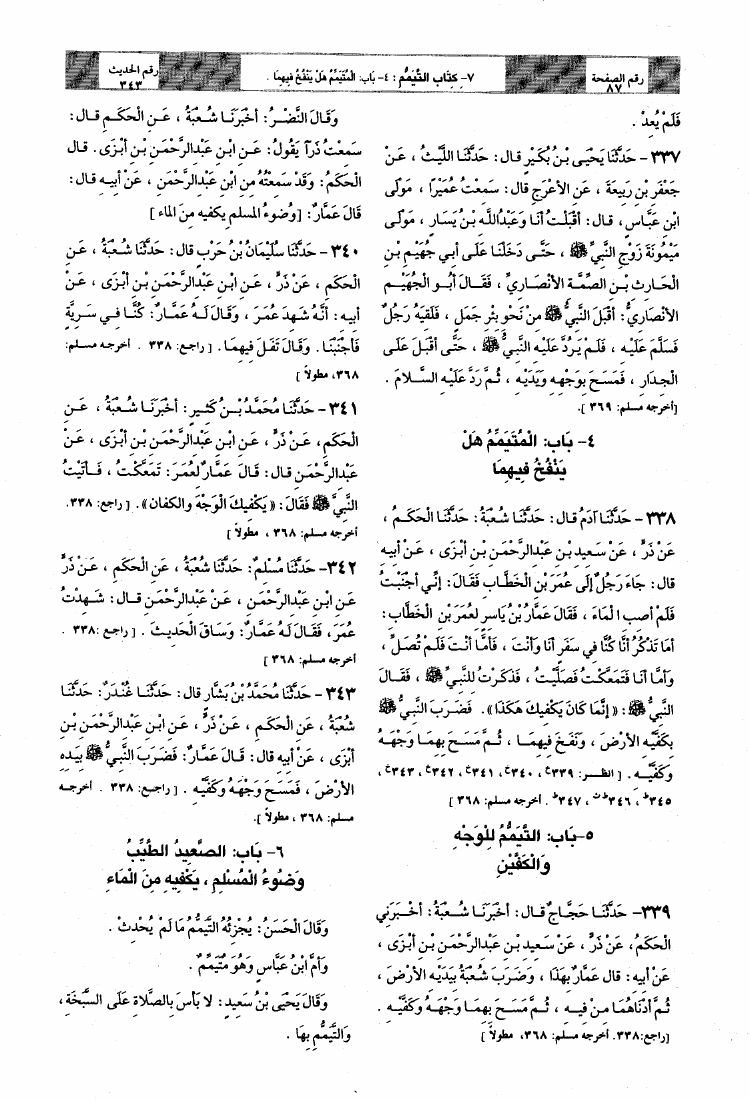 رقم الصفحة
٨٧
٧- كِتَاب التَّيَمُّم : ٤- بَاب: المُتَيَمِّمُ هَلْ يَنْفُخُ فِيهِمَا .
رقم الحديث
٣٤٣
فَلَمْ يُعِدْ .
٣٣٧- حَدَّثَنَا يَحْيَى بْنُ بُكَيْرٍ قال: حَدَّثَنَا اللَّيْثُ ، عَنْ
جَعْفَرِ بْنِ رَبِيعَةَ ، عَنِ الأعْرَجِ قال: سَمِعْتُ عُمَيْراً ، مَوْلَى
ابْنِ عَبَّاسٍ، قال: أقْبَلْتُ أنَا وَعَبْدُاللَّهِ بْنُ يَسَارٍ ، مَوْلَى
مَيْمُونَةَ زَوْجِ النَّبِيِّ ﷺ ، حَتَّى دَخَلْنَا عَلَى أبِي جُهَيْمِ بْنِ
الحَارِثِ بْنِ الصِّمَّةِ الأنْصَارِيِّ ، فَقَالَ أبُو الْجُهَيْمِ
الأنْصَارِيُّ: أقْبَلَ النَّبِيُّ ﷺ مِنْ نَحْوِ بِئْرِ جَمَلٍ ، فَلَقِيَهُ رَجُلٌ
فَسَلَّمَ عَلَيْهِ ، فَلَمْ يَرُدَّ عَلَيْهِ النَّبِيُّ ﷺ ، حَتَّى أقْبَلَ عَلَى
الْجِدَارِ ، فَمَسَحَ بِوَجْهِهِ وَيَدَيْهِ ، ثُمَّ رَدَّ عَلَيْهِ السَّلامَ .
[أخرجه مسلم: ٣٦٩ ].
٤- بَاب: الْمُتَيَمِّمُ هَلْ
يَنْفُخُ فِيهِمَا
٣٣٨- حَدَّثَنَا آدَمُ قال: حَدَّثَنَا شُعْبَةُ: حَدَّثَنَا الحَكَمُ ،
عَنْ ذَرٍّ ، عَنْ سَعِيدِ بْنِ عَبْدِالرَّحْمَنِ بْنِ أبْزَى ، عَنْ أبِيهِ
قال: جَاءَ رَجُلٌ إلَى عُمَرَ بْنِ الْخَطَّابِ فَقَالَ: إنِّي أجْنَبْتُ
فَلَمْ أصِبِ الْمَاءَ ، فَقَالَ عَمَّارُ بْنُ يَاسِرٍ لِعُمَرَ بْنِ الْخَطَّابِ:
أمَا تَذْكُرُ أنَّا كُنَّا فِي سَفَرٍ أنَا وَأنْتَ ، فَأمَّا أنْتَ فَلَمْ تُصَلِّ ،
وَأمَّا أنَا فَتَمَعَّكْتُ فَصَلَّيْتُ ، فَذَكَرْتُ لِلنَّبِيِّ ﷺ ، فَقَالَ
النَّبِيُّ ﷺ: «إنَّمَا كَانَ يَكْفِيكَ هَكَذَا». فَضَرَبَ النَّبِيُّ ﷺ
بِكَفَّيْهِ الأرْضَ ، وَنَفَخَ فِيهِمَا ، ثُمَّ مَسَحَ بِهِمَا وَجْهَهُ
وَكَفَّيْهِ . [ انظر: ٣٣٩ع، ٣٤٠ع، ٣٤١ع، ٣٤٢ع، ٣٤٣ع،
٣٤٥، ٣٤٦، ٣٤٧ . أخرجه مسلم: ٣٦٨ ]
٥-بَاب: التَّيَمُّمُ لِلْوَجْهِ
وَالْكَفَّيْنِ
٣٣٩- حَدَّثَنَا حَجَّاجٌ قال: أخْبَرَنَا شُعْبَةُ: أخْبَرَنِي
الحَكَمُ ، عَنْ ذَرٍّ ، عَنْ سَعِيدِ بْنِ عَبْدِالرَّحْمَنِ بْنِ أبْزَى ،
عَنْ أبِيهِ: قال عَمَّارٌ بِهَذَا ، وَضَرَبَ شُعْبَةُ بِيَدَيْهِ الأرْضَ ،
ثُمَّ أدْنَاهُمَا مِنْ فِيهِ ، ثُمَّ مَسَحَ بِهِمَا وَجْهَهُ وَكَفَّيْهِ .
[راجع:٣٣٨. أخرجه مسلم: ٣٦٨، مطولاً ]
وَقَالَ النَّضْرُ: أخْبَرَنَا شُعْبَةُ ، عَنِ الْحَكَمِ قال:
سَمِعْتُ ذَرّاً يَقُولُ: عَنِ ابْنِ عَبْدِالرَّحْمَنِ بْنِ أبْزَى. قال
الْحَكَمُ: وَقَدْ سَمِعْتُهُ مِنِ ابْنِ عَبْدِالرَّحْمَنِ ، عَنْ أبِيهِ قال:
قَالَ عَمَّارٌ: [وُضُوءُ المسلم يكفيه منَ الماء ]
٣٤٠- حَدَّثَنَا سُلَيْمَانُ بْنُ حَرْبٍ قال: حَدَّثَنَا شُعْبَةُ ، عَنِ
الحَكَمِ ، عَنْ ذَرٍّ ، عَنِ ابْنِ عَبْدِالرَّحْمَنِ بْنِ أبْزَى ، عَنْ
أبِيهِ: أنَّهُ شَهِدَ عُمَرَ ، وَقَالَ لَهُ عَمَّارٌ: كُنَّا فِي سَرِيَّةٍ
فَأجْنَبْنَا. وَقَالَ تَفَلَ فِيهِمَا. [ راجع: ٣٣٨ . أخرجه مسلم:
٣٦٨، مطولاً ]
٣٤١- حَدَّثَنَا مُحَمَّدُ بْنُ كَثِيرٍ: أخْبَرَنَا شُعْبَةُ ، عَنِ
الحَكَمِ، عَنْ ذَرٍّ ، عَنِ ابْنِ عَبْدِالرَّحْمَنِ بْنِ أبْزَى ، عَنْ
عَبْدِالرَّحْمَنِ قال: قَالَ عَمَّارٌ لِعُمَرَ: تَمَعَّكْتُ ، فَأتَيْتُ
النَّبِيَّ ﷺ فَقَالَ: «يَكْفِيكَ الْوَجْهَ وَالكَفَّانِ». [ راجع: ٣٣٨.
أخرجه مسلم: ٣٦٨ ، مطولاً ]
٣٤٢- حَدَّثَنَا مُسْلِمٌ: حَدَّثَنَا شُعْبَةُ ، عَنِ الْحَكَمِ ، عَنْ ذَرٍّ
عَنِ ابْنِ عَبْدِالرَّحْمَنِ ، عَنْ عَبْدِالرَّحْمَنِ قال: شَهِدْتُ
عُمَرَ، فَقَالَ لَهُ عَمَّارٌ: وَسَاقَ الْحَدِيثَ . [ راجع :٣٣٨ .
أخرجه مسلم: ٣٦٨ ]
٣٤٣- حَدَّثَنَا مُحَمَّدُ بْنُ بَشَّارٍ قال: حَدَّثَنَا غُنْدَرٌ: حَدَّثَنَا
شُعْبَةُ ، عَنِ الْحَكَمِ ، عَنْ ذَرٍّ ، عَنِ ابْنِ عَبْدِالرَّحْمَنِ بْنِ
أبْزَى ، عَنْ أبِيهِ قال: قَالَ عَمَّارٌ: فَضَرَبَ النَّبِيُّ ﷺ بِيَدِهِ
الأرْضَ ، فَمَسَحَ وَجْهَهُ وَكَفَّيْهِ . [ راجع: ٣٣٨ . أخرجه
مسلم: ٣٦٨ ، مطولاً ].
٦- بَاب: الصَّعِيدُ الطَّيِّبُ
وَضُوءُ الْمُسْلِمِ ، يَكْفِيهِ مِنَ الْمَاءِ
وَقَالَ الْحَسَنُ: يُجْزِئُهُ التَّيَمُّمُ مَا لَمْ يُحْدِثْ .
وَأَمَّ ابْنُ عَبَّاسٍ وَهُوَ مُتَيَمِّمٌ .
وَقَالَ يَحْيَى بْنُ سَعِيدٍ: لا بَأسَ بِالصَّلاةِ عَلَى السَّبَخَةِ ،
وَالتَّيَمُّمِ بِهَا .